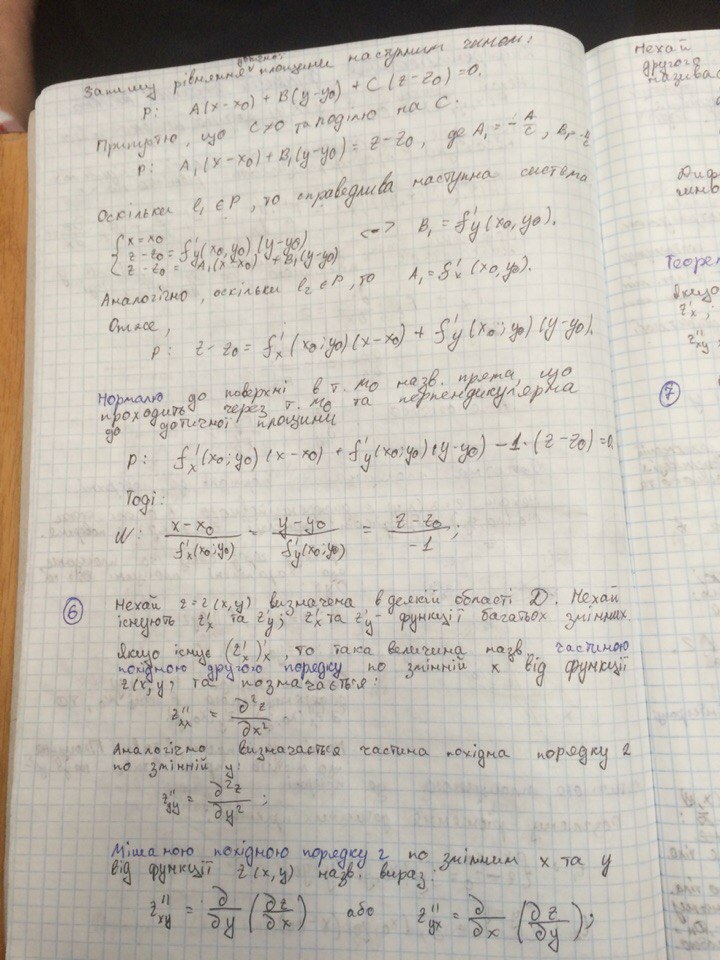 Запишу рівняння дотичної площини наступним чином:
P: A(x-x₀) + B(y-y₀) + C(z-z₀) = 0.
Припустю, що C≠0 та поділю на C.
P: A₁(x-x₀) + B₁(y-y₀) = z-z₀, де A₁ = -A/C, B₁ = -B/C
Оскільки l₁ ∈ P, то справедлива наступна система
{ x = x₀
z-z₀ = f'y(x₀,y₀)(y-y₀) <=> B₁ = f'y(x₀,y₀).
z-z₀ = A₁(x-x₀) + B₁(y-y₀)
Аналогічно, оскільки l₂ ∈ P, то A₁ = f'x(x₀,y₀).
Отже,
P: z-z₀ = f'x(x₀;y₀)(x-x₀) + f'y(x₀;y₀)(y-y₀).
Нормалю до поверхні в т. M₀ назв. пряма, що
проходить через т. M₀ та перпендикулярна
до дотичної площини
P: f'x(x₀;y₀)(x-x₀) + f'y(x₀;y₀)(y-y₀) - 1·(z-z₀) = 0.
Тоді:
N: (x-x₀)/f'x(x₀;y₀) = (y-y₀)/f'y(x₀;y₀) = (z-z₀)/-1;
6 Нехай z=z(x,y) визначена в деякій області D. Нехай
існують z'x та z'y; z'x та z'y - функції багатьох змінних.
Якщо існує (z'x)'x, то така величина назв. частиною
похідною другого порядку по змінній x від функції
z(x,y) та позначається:
z''xx = ∂²z/∂x²
Аналогічно визначається частина похідна порядку 2
по змінній y:
z''yy = ∂²z/∂y²;
Мішаною похідною порядку 2 по змінним x та y
від функції z(x,y) назв. вираз:
z''xy = ∂/∂y (∂z/∂x) або z''yx = ∂/∂x (∂z/∂y);
Нехай
другого
називає
Теорем
Якщо
z'x,
z''xy
7